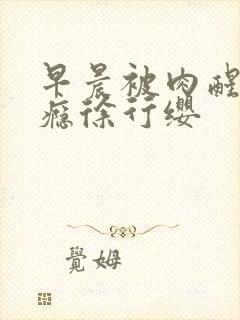 早晨被肉醒
瘾徐行缨
觉姆